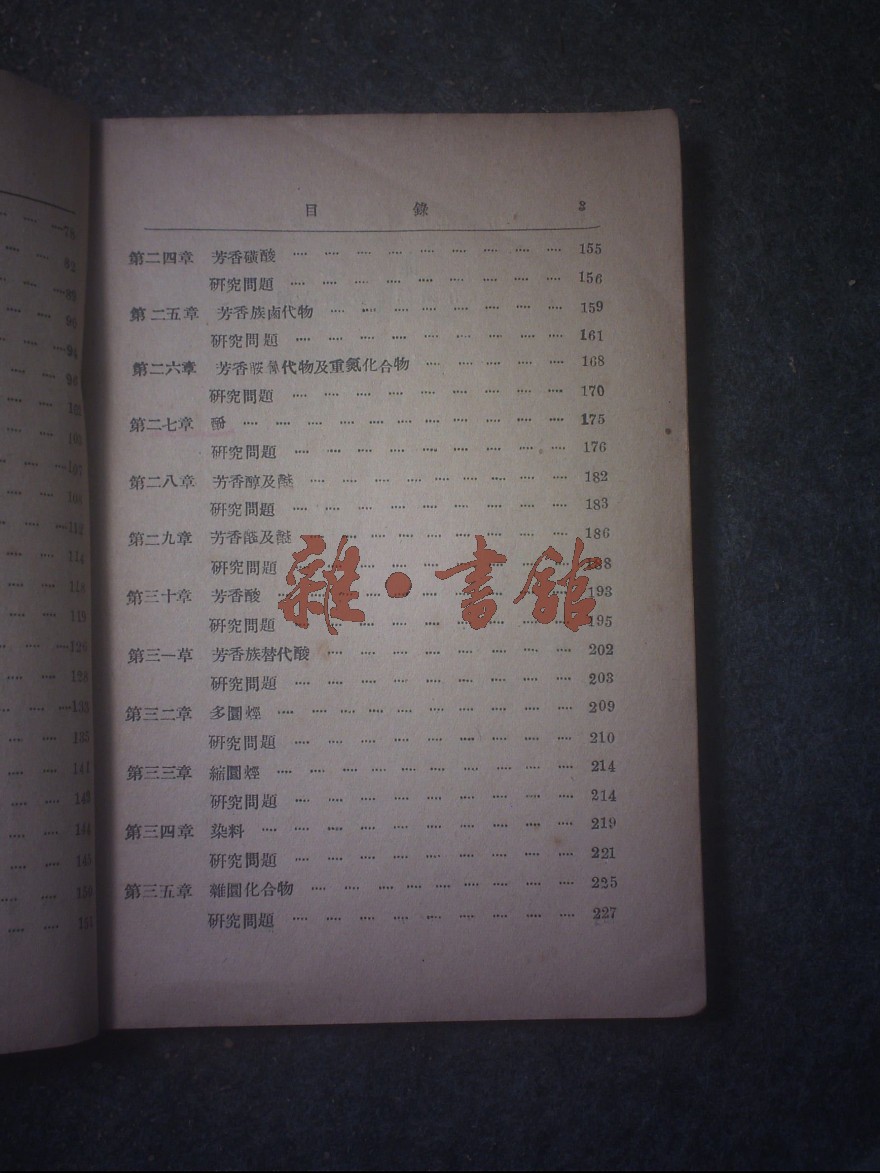 78
82
89
95
94
98
102
103
107
108
112
114
118
119
126
128
133
135
141
143
144
145
150
目 錄 3
第二四章 芳香磺酸 ···· ···· ···· ···· ···· ···· ···· ···· ···· 155
研究問題 ···· ···· ···· ···· ···· ···· ···· ···· ···· 156
第二五章 芳香族鹵代物 ···· ···· ···· ···· ···· ···· ···· ···· 159
研究問題 ···· ···· ···· ···· ···· ···· ···· ···· ···· 161
第二六章 芳香 代物及重氮化合物 ···· ···· ···· ···· ···· 168
研究問題 ···· ···· ···· ···· ···· ···· ···· ···· ···· 170
第二七章 酚 ···· ···· ···· ···· ···· ···· ···· ···· ···· ···· 175
研究問題 ···· ···· ···· ···· ···· ···· ···· ···· ···· 176
第二八章 芳香醇及醚 ···· ···· ···· ···· ···· ···· ···· ···· 182
研究問題 ···· ···· ···· ···· ···· ···· ···· ···· ···· 183
第二九章 芳香醛及 ···· ···· ···· ···· ···· ···· ···· ···· 186
研究問題 ···· ···· ···· ···· ···· ···· ···· ···· 188
第三十章 芳香酸 ···· ···· ···· ···· ···· ···· ···· ···· 193
研究問題 ···· ···· ···· ···· ···· ···· ···· ···· 195
雜·書館
第三一草 芳香族替代酸 ···· ···· ···· ···· ···· ···· ···· ···· 202
研究問題 ···· ···· ···· ···· ···· ···· ···· ···· ···· 203
第三二章 多圜烴 ···· ···· ···· ···· ···· ···· ···· ···· ···· ···· 209
研究問題 ···· ···· ···· ···· ···· ···· ···· ···· ···· 210
第三三章 縮圜烴 ···· ···· ···· ···· ···· ···· ···· ···· ···· 214
研究問題 ···· ···· ···· ···· ···· ···· ···· ···· ···· 214
第三四章 染料 ···· ···· ···· ···· ···· ···· ···· ···· ···· ···· 219
研究問題 ···· ···· ···· ···· ···· ···· ···· ···· ···· 221
第三五章 雜圜化合物 ···· ···· ···· ···· ···· ···· ···· ···· 225
研究問題 ···· ···· ···· ···· ···· ···· ···· ···· ···· 227